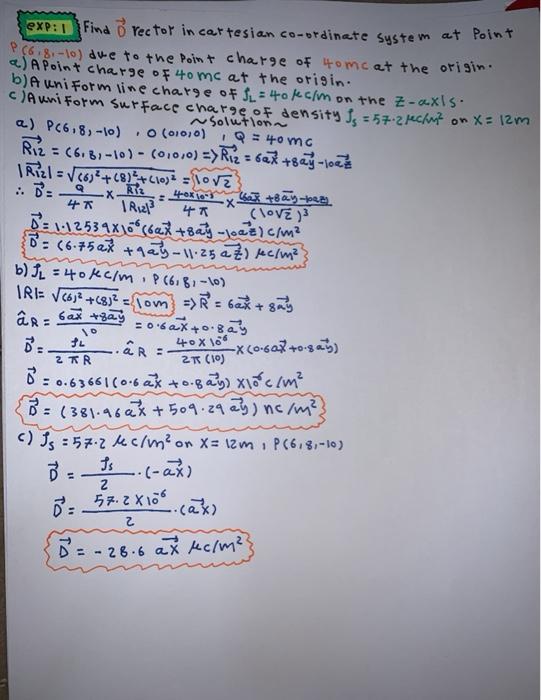 exp:1 Find D⃗ vector in cartesian co-ordinate system at Point
P(6,8,-10) due to the Point charge of 40mc at the origin.
a) A Point charge of 40mc at the origin.
b) A uniform line charge of ρL = 40 μc/m on the z-axis.
c) A uniform surface charge of density ρs = 57.2 μc/m² on x = 12m
~Solution~
a) P(6,8,-10) , O(0,0,0) , Q = 40mc
R⃗12 = (6,8,-10) - (0,0,0) => R⃗12 = 6ax⃗ + 8ay⃗ - 10az⃗
|R⃗12| = √(6)²+(8)²+(10)² = 10√2
∴ D⃗ = Q/4π × R⃗12/|R12|³ = 40×10⁻³/4π × (6ax⃗ + 8ay⃗ - 10az⃗)/(10√2)³
D⃗ = 1.12539×10⁻⁶ (6ax⃗ + 8ay⃗ - 10az⃗) c/m²
D⃗ = (6.75ax⃗ + 9ay⃗ - 11.25az⃗) μc/m²
b) ρL = 40 μc/m , P(6,8,-10)
|R| = √(6)²+(8)² = 10m => R⃗ = 6ax⃗ + 8ay⃗
âR = (6ax⃗ + 8ay⃗)/10 = 0.6ax⃗ + 0.8ay⃗
D⃗ = ρL/2πR . âR = 40×10⁻⁶/2π(10) × (0.6ax⃗ + 0.8ay⃗)
D⃗ = 0.63661(0.6ax⃗ + 0.8ay⃗) ×10⁻⁶ c/m²
D⃗ = (381.96ax⃗ + 509.29ay⃗) nc/m²
c) ρs = 57.2 μc/m² on x = 12m , P(6,8,-10)
D⃗ = ρs/2 . (-ax⃗)
D⃗ = 57.2×10⁻⁶/2 . (ax⃗)
D⃗ = -28.6 ax⃗ μc/m²